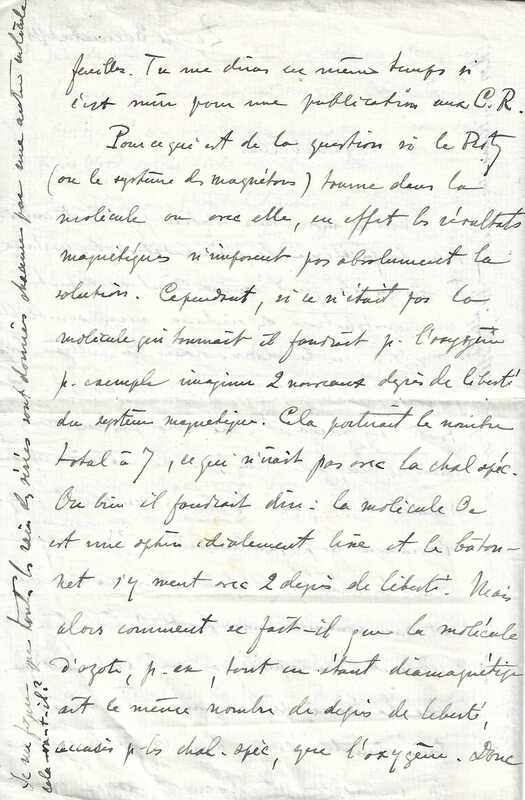 feuilles. Tu me diras en même temps si
c'est mûr pour une publication aux C.R.
Pour ce qui est de la question si le
(ou le système des magnétons) tourne dans la
molécule ou avec elle, en effet les résultats
magnétiques n'imposent pas absolument la
solution. Cependant, si ce n'était pas la
molécule qui tournait il faudrait p. l'oxygène
p. exemple imaginer 2 nouveaux degrés de liberté
du système magnétique. Cela porterait le nombre
total à 7, ce qui n'irait pas avec la chal. spéc.
Ou bien il faudrait dire : la molécule O2
est une sphère idéalement lisse et le bâton-
net s'y meut avec 2 degrés de liberté. Mais
alors comment se fait-il que la molécule
d'azote, p. ex, tout en étant diamagnétique
ait le même nombre de degrés de liberté,
accusés p. la chal. spéc, que l'oxygène. Donc
Je me figure que toutes les raies des séries sont données chacune par une autre molécule
cela va-t-il?